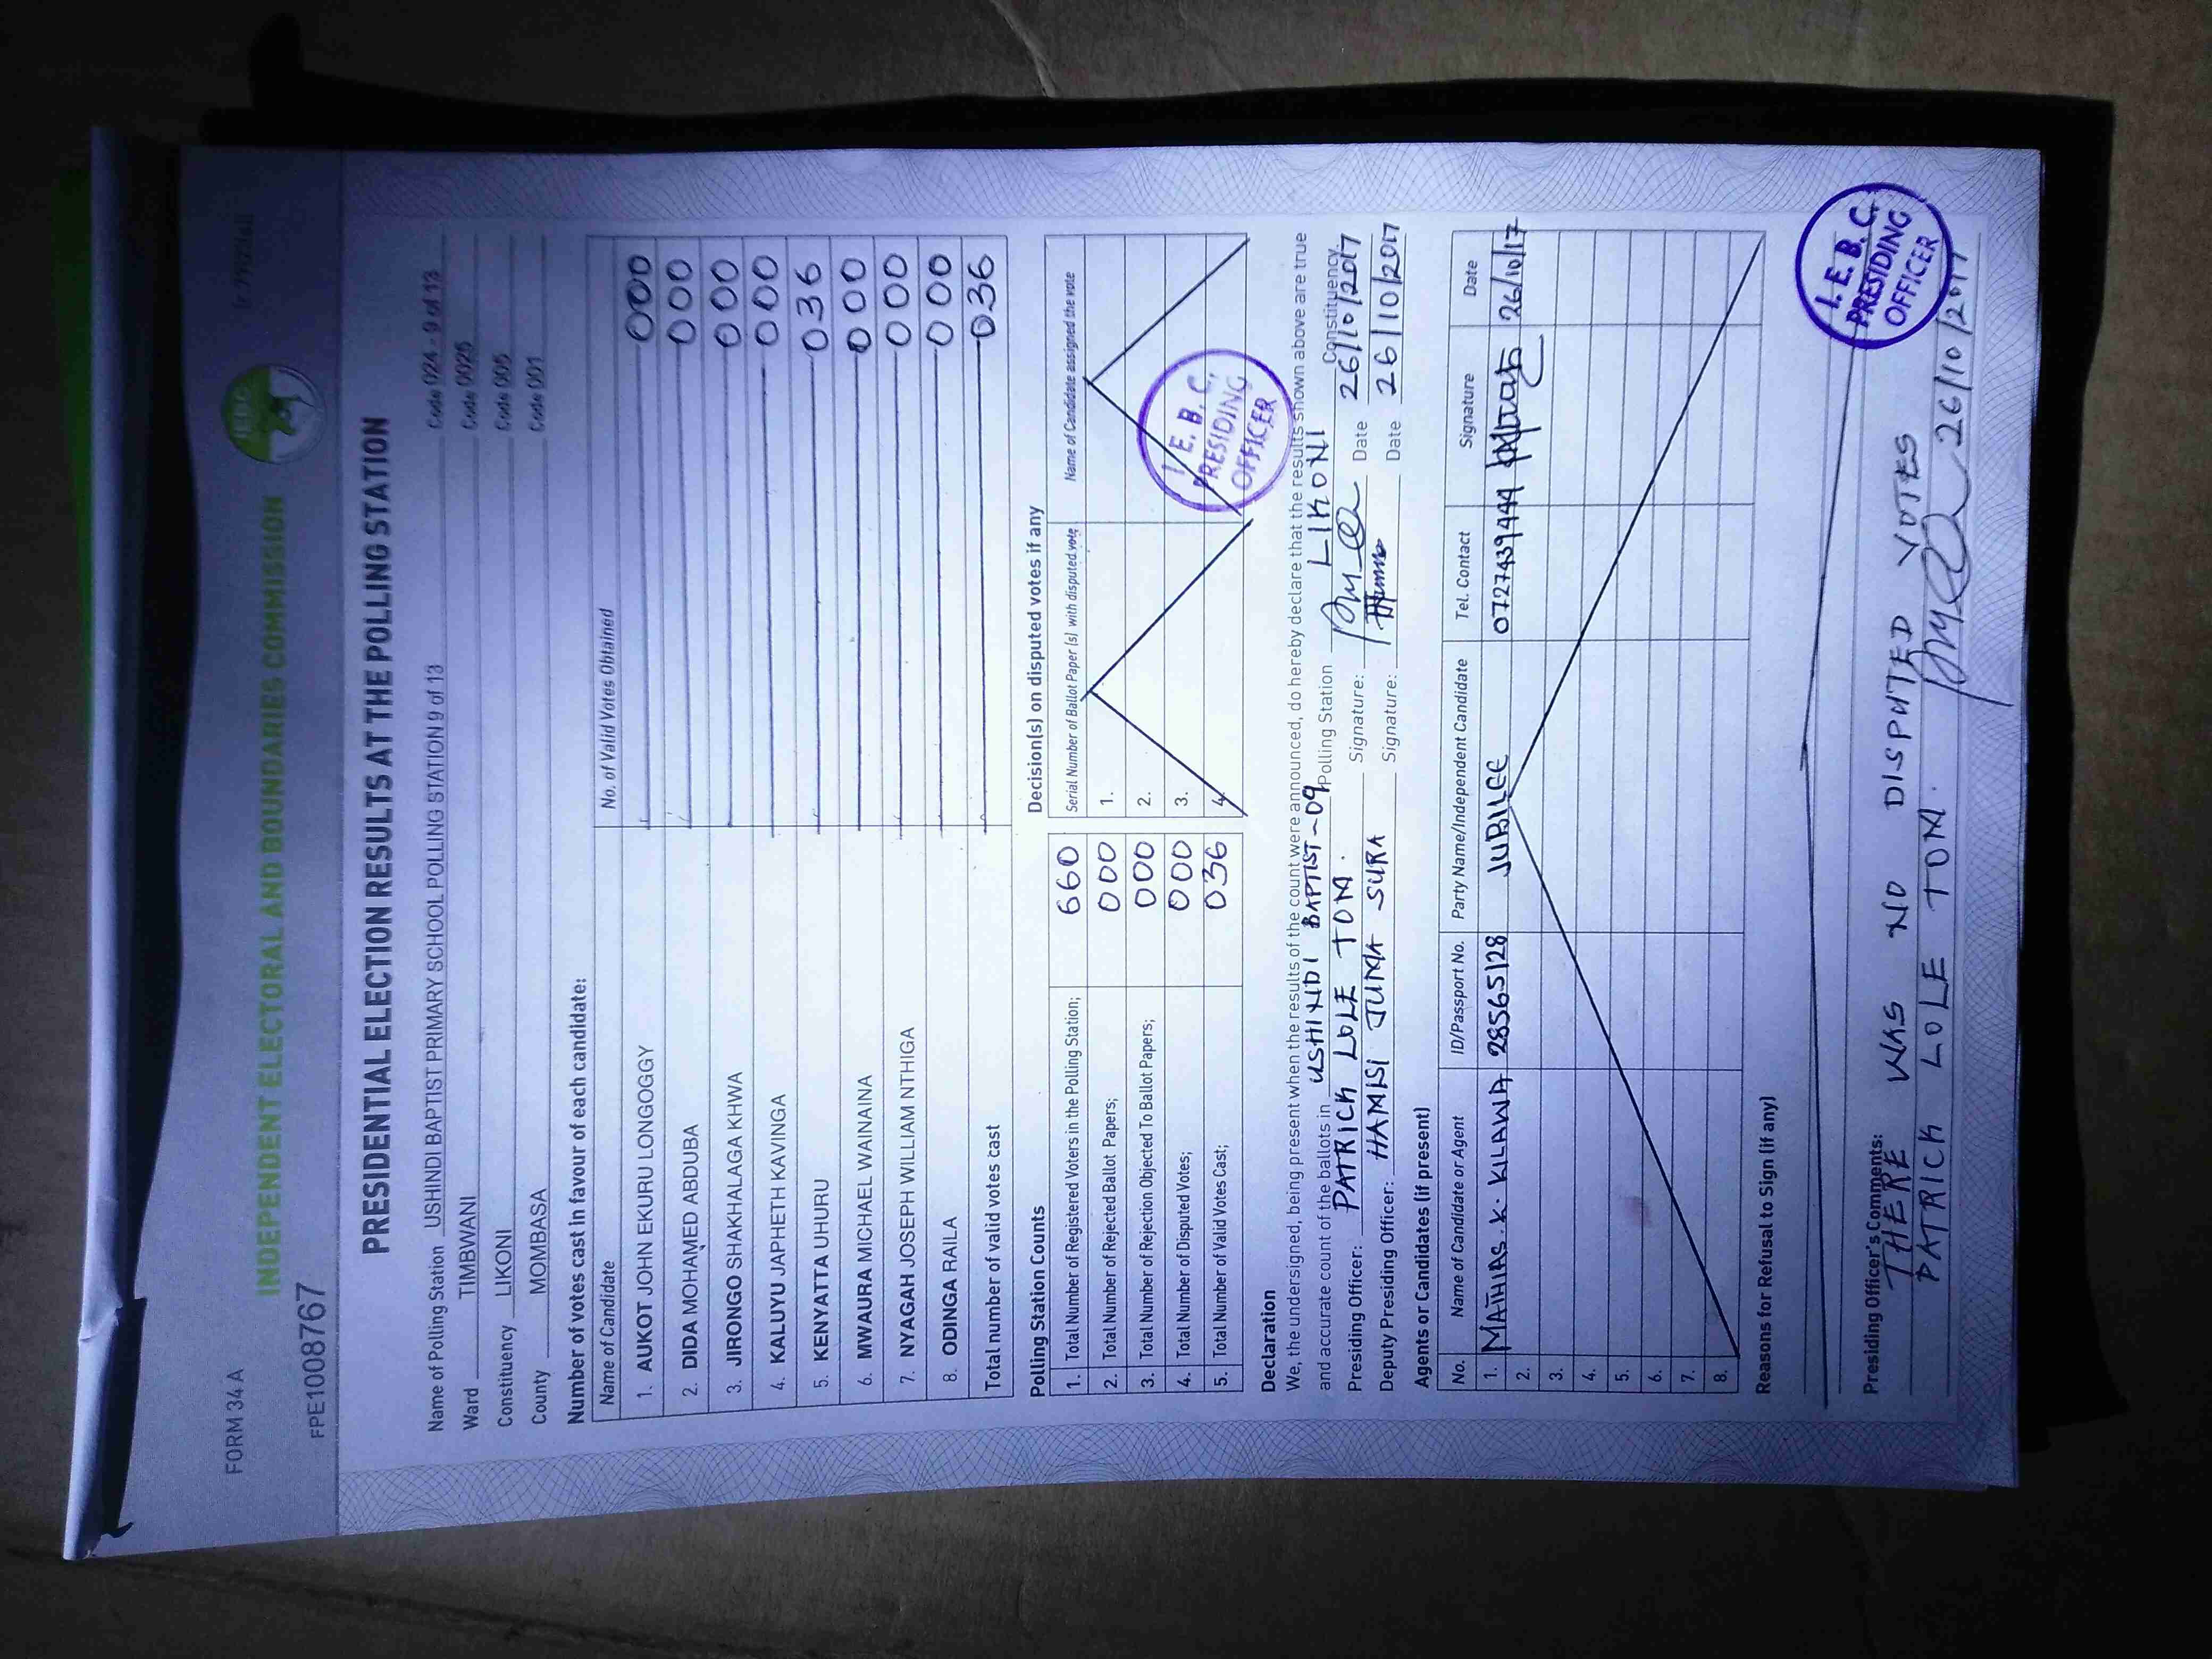 FORM 34 A
INDEPENDENT ELECTORAL AND BOUNDARIES COMMISSION
IEBC
FPE1008767
PRESIDENTIAL ELECTION RESULTS AT THE POLLING STATION
Name of Polling Station USHINDI BAPTIST PRIMARY SCHOOL POLLING STATION 9 of 13 Code 024 - 9 of 13
Ward TIMBWANI Code 0025
Constituency LIKONI Code 005
County MOMBASA Code 001
Number of votes cast in favour of each candidate:
Name of Candidate No. of Valid Votes Obtained
1. AUKOT JOHN EKURU LONGOGGY 000
2. DIDA MOHAMED ABDUBA 000
3. JIRONGO SHAKHALAGA KHWA 000
4. KALUYU JAPHETH KAVINGA 000
5. KENYATTA UHURU 036
6. MWAURA MICHAEL WAINAINA 000
7. NYAGAH JOSEPH WILLIAM NTHIGA 000
8. ODINGA RAILA 000
Total number of valid votes cast 036
Polling Station Counts
1. Total Number of Registered Voters in the Polling Station; 660
2. Total Number of Rejected Ballot Papers; 000
3. Total Number of Rejection Objected To Ballot Papers; 000
4. Total Number of Disputed Votes; 000
5. Total Number of Valid Votes Cast; 036
Decision(s) on disputed votes if any
Serial Number of Ballot Paper (s) with disputed vote Name of Candidate assigned the vote
1.
2.
3.
4.
I. E. B. C.
PRESIDING
OFFICER
Declaration
We, the undersigned, being present when the results of the count were announced, do hereby declare that the results shown above are true
and accurate count of the ballots in USHINDI BAPTIST-09 Polling Station LIKONI Constituency.
Presiding Officer: PATRICK LOLE TOM. Signature: Date 26/10/2017
Deputy Presiding Officer: HAMISI JUMA SURA Signature: Date 26/10/2017
Agents or Candidates (if present)
No. Name of Candidate or Agent ID/Passport No. Party Name/Independent Candidate Tel. Contact Signature Date
1. MATHIAS.K.KILAWA 28565128 JUBILEE 0727439444 26/10/17
2.
3.
4.
5.
6.
7.
8.
Reasons for Refusal to Sign (if any)
I. E. B. C.
PRESIDING
OFFICER
Presiding Officer's Comments:
THERE WAS NO DISPUTED VOTES
PATRICK LOLE TOM. 26/10/2017